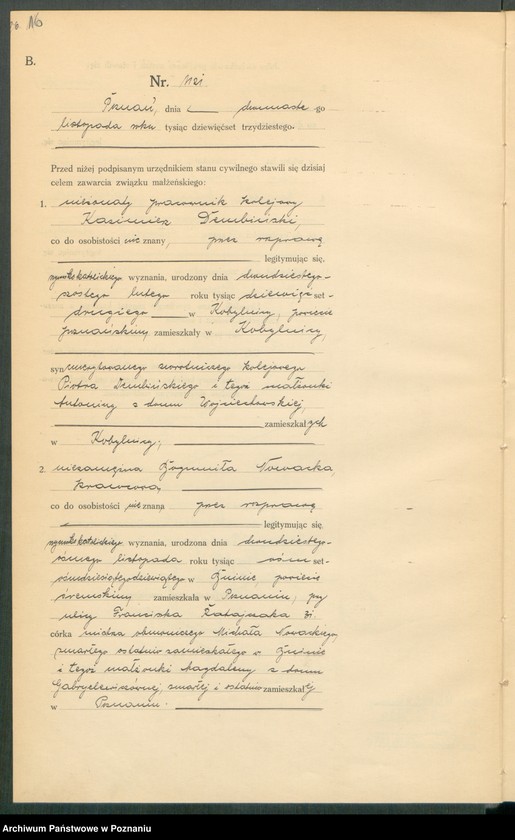 B.
Nr. 1121.
Poznań, dnia dwunastego
listopada roku tysiąc dziewięćset trzydziestego.
Przed niżej podpisanym urzędnikiem stanu cywilnego stawili się dzisiaj
celem zawarcia związku małżeńskiego:
1. nieżonaty pracownik kolejowy
Kazimierz Dembiński,
co do osobistości znany, przez rozprawę
legitymując się.
rzymskokatolickiego wyznania, urodzony dnia dwudziestego-
szóstego lutego roku tysiąc dziewięćset-
drugiego w Kobylnicy, powiecie
poznańskim, zamieszkały w Kobylnicy,
syn zwrotniczego kolejowego
Piotra Dembińskiego i tegoż małżonki
Antoniny z domu Wojciechowskiej,
zamieszkałych
w Kobylnicy;
2. niezamężna Bogumiła Nowacka,
krawcowa,
co do osobistości znana przez rozprawę
legitymując się
rzymskokatolickiego wyznania, urodzona dnia dwudziestego-
ósmego listopada roku tysiąc ósmset-
w Żninie, powiecie
zamieszkała w Poznaniu, przy
ulicy Franciszka Ratajczaka
córka mistrza Michała Nowackiego,
zmarłego ostatnio zamieszkałego w Żninie
i tegoż małżonki Magdaleny z domu
zmarłej i ostatnio zamieszkałej
w Poznaniu.
Archiwum Państwowe w Poznaniu